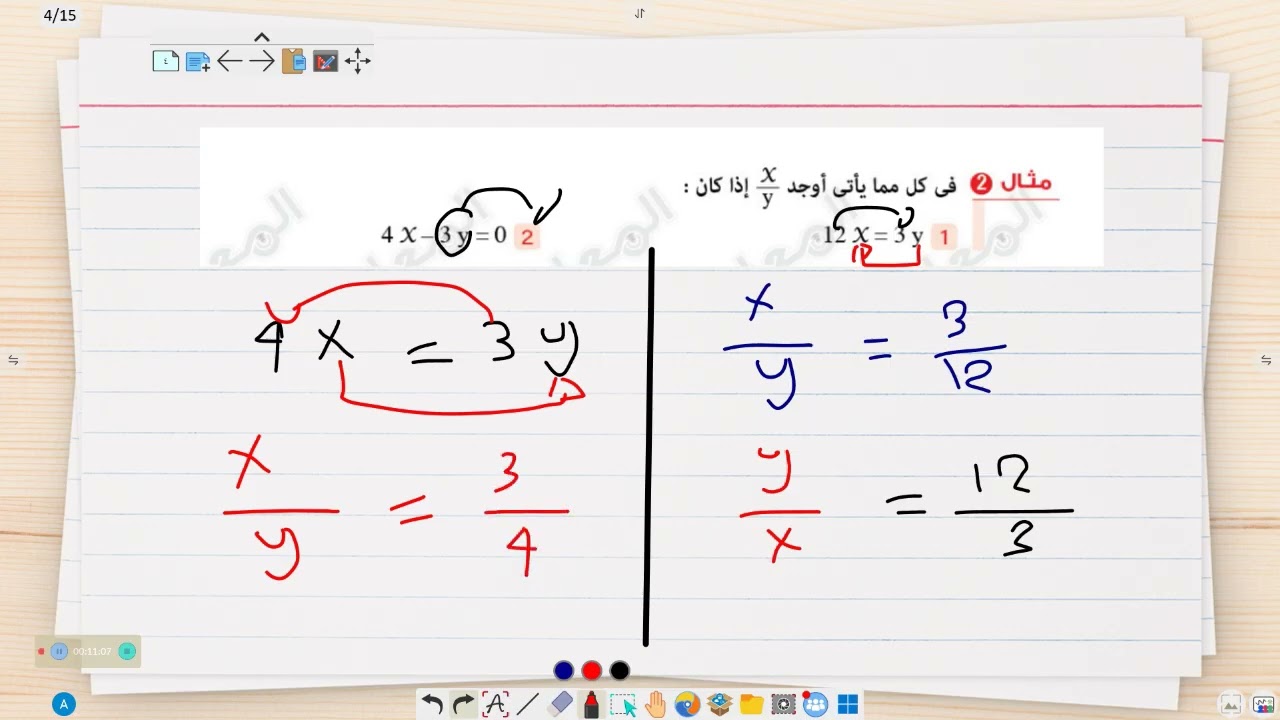 4/15
مثال 2 فى كل مما يأتى أوجد x/y إذا كان :
1 12 x = 3 y
2 4 x – 3 y = 0
x/y = 3/12
y/x = 12/3
4 x = 3 y
x/y = 3/4
00:11:07
A